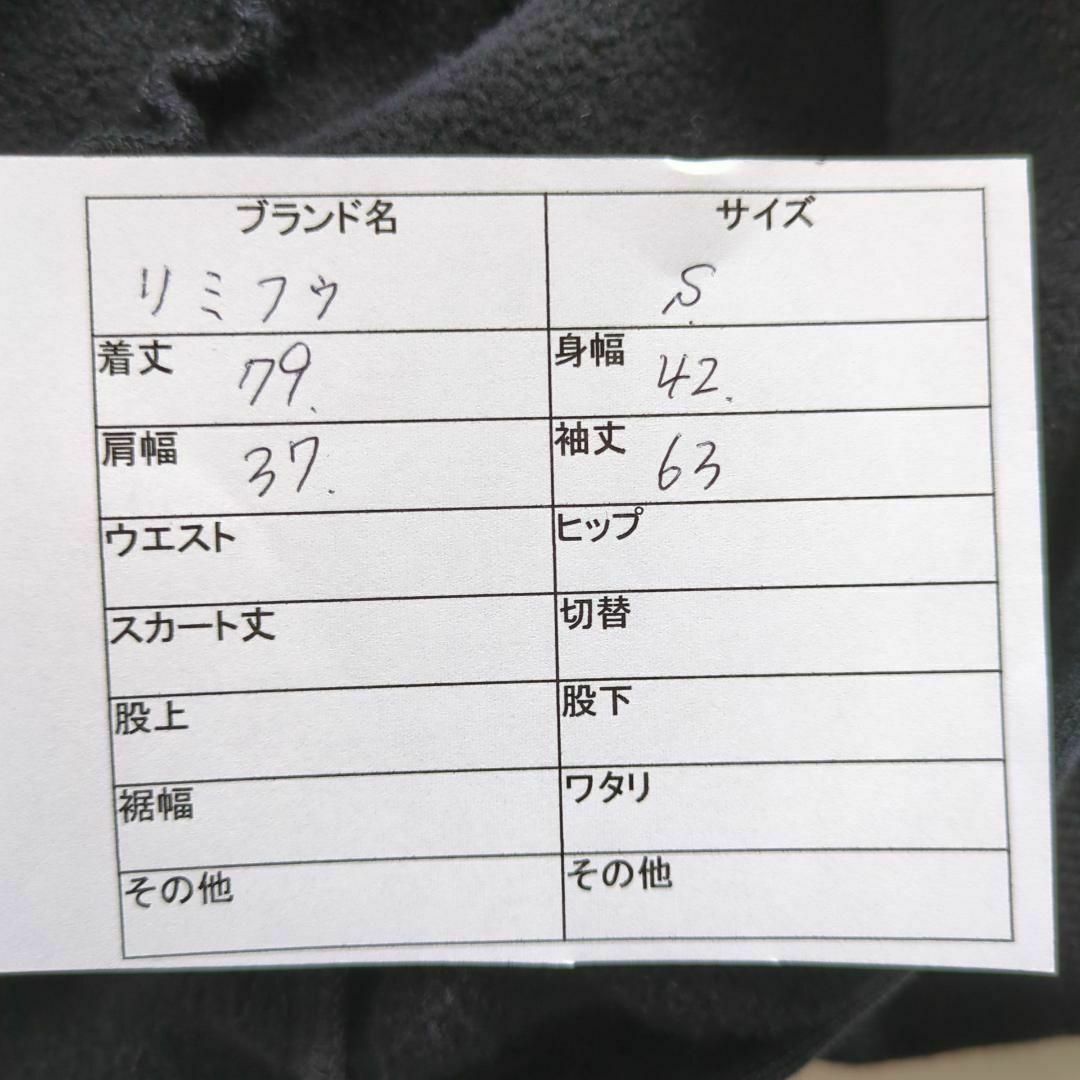 ブランド名 サイズ
リミフゥ S
着丈 79. 身幅 42.
肩幅 37. 袖丈 63
ウエスト ヒップ
スカート丈 切替
股上 股下
裾幅 ワタリ
その他 その他